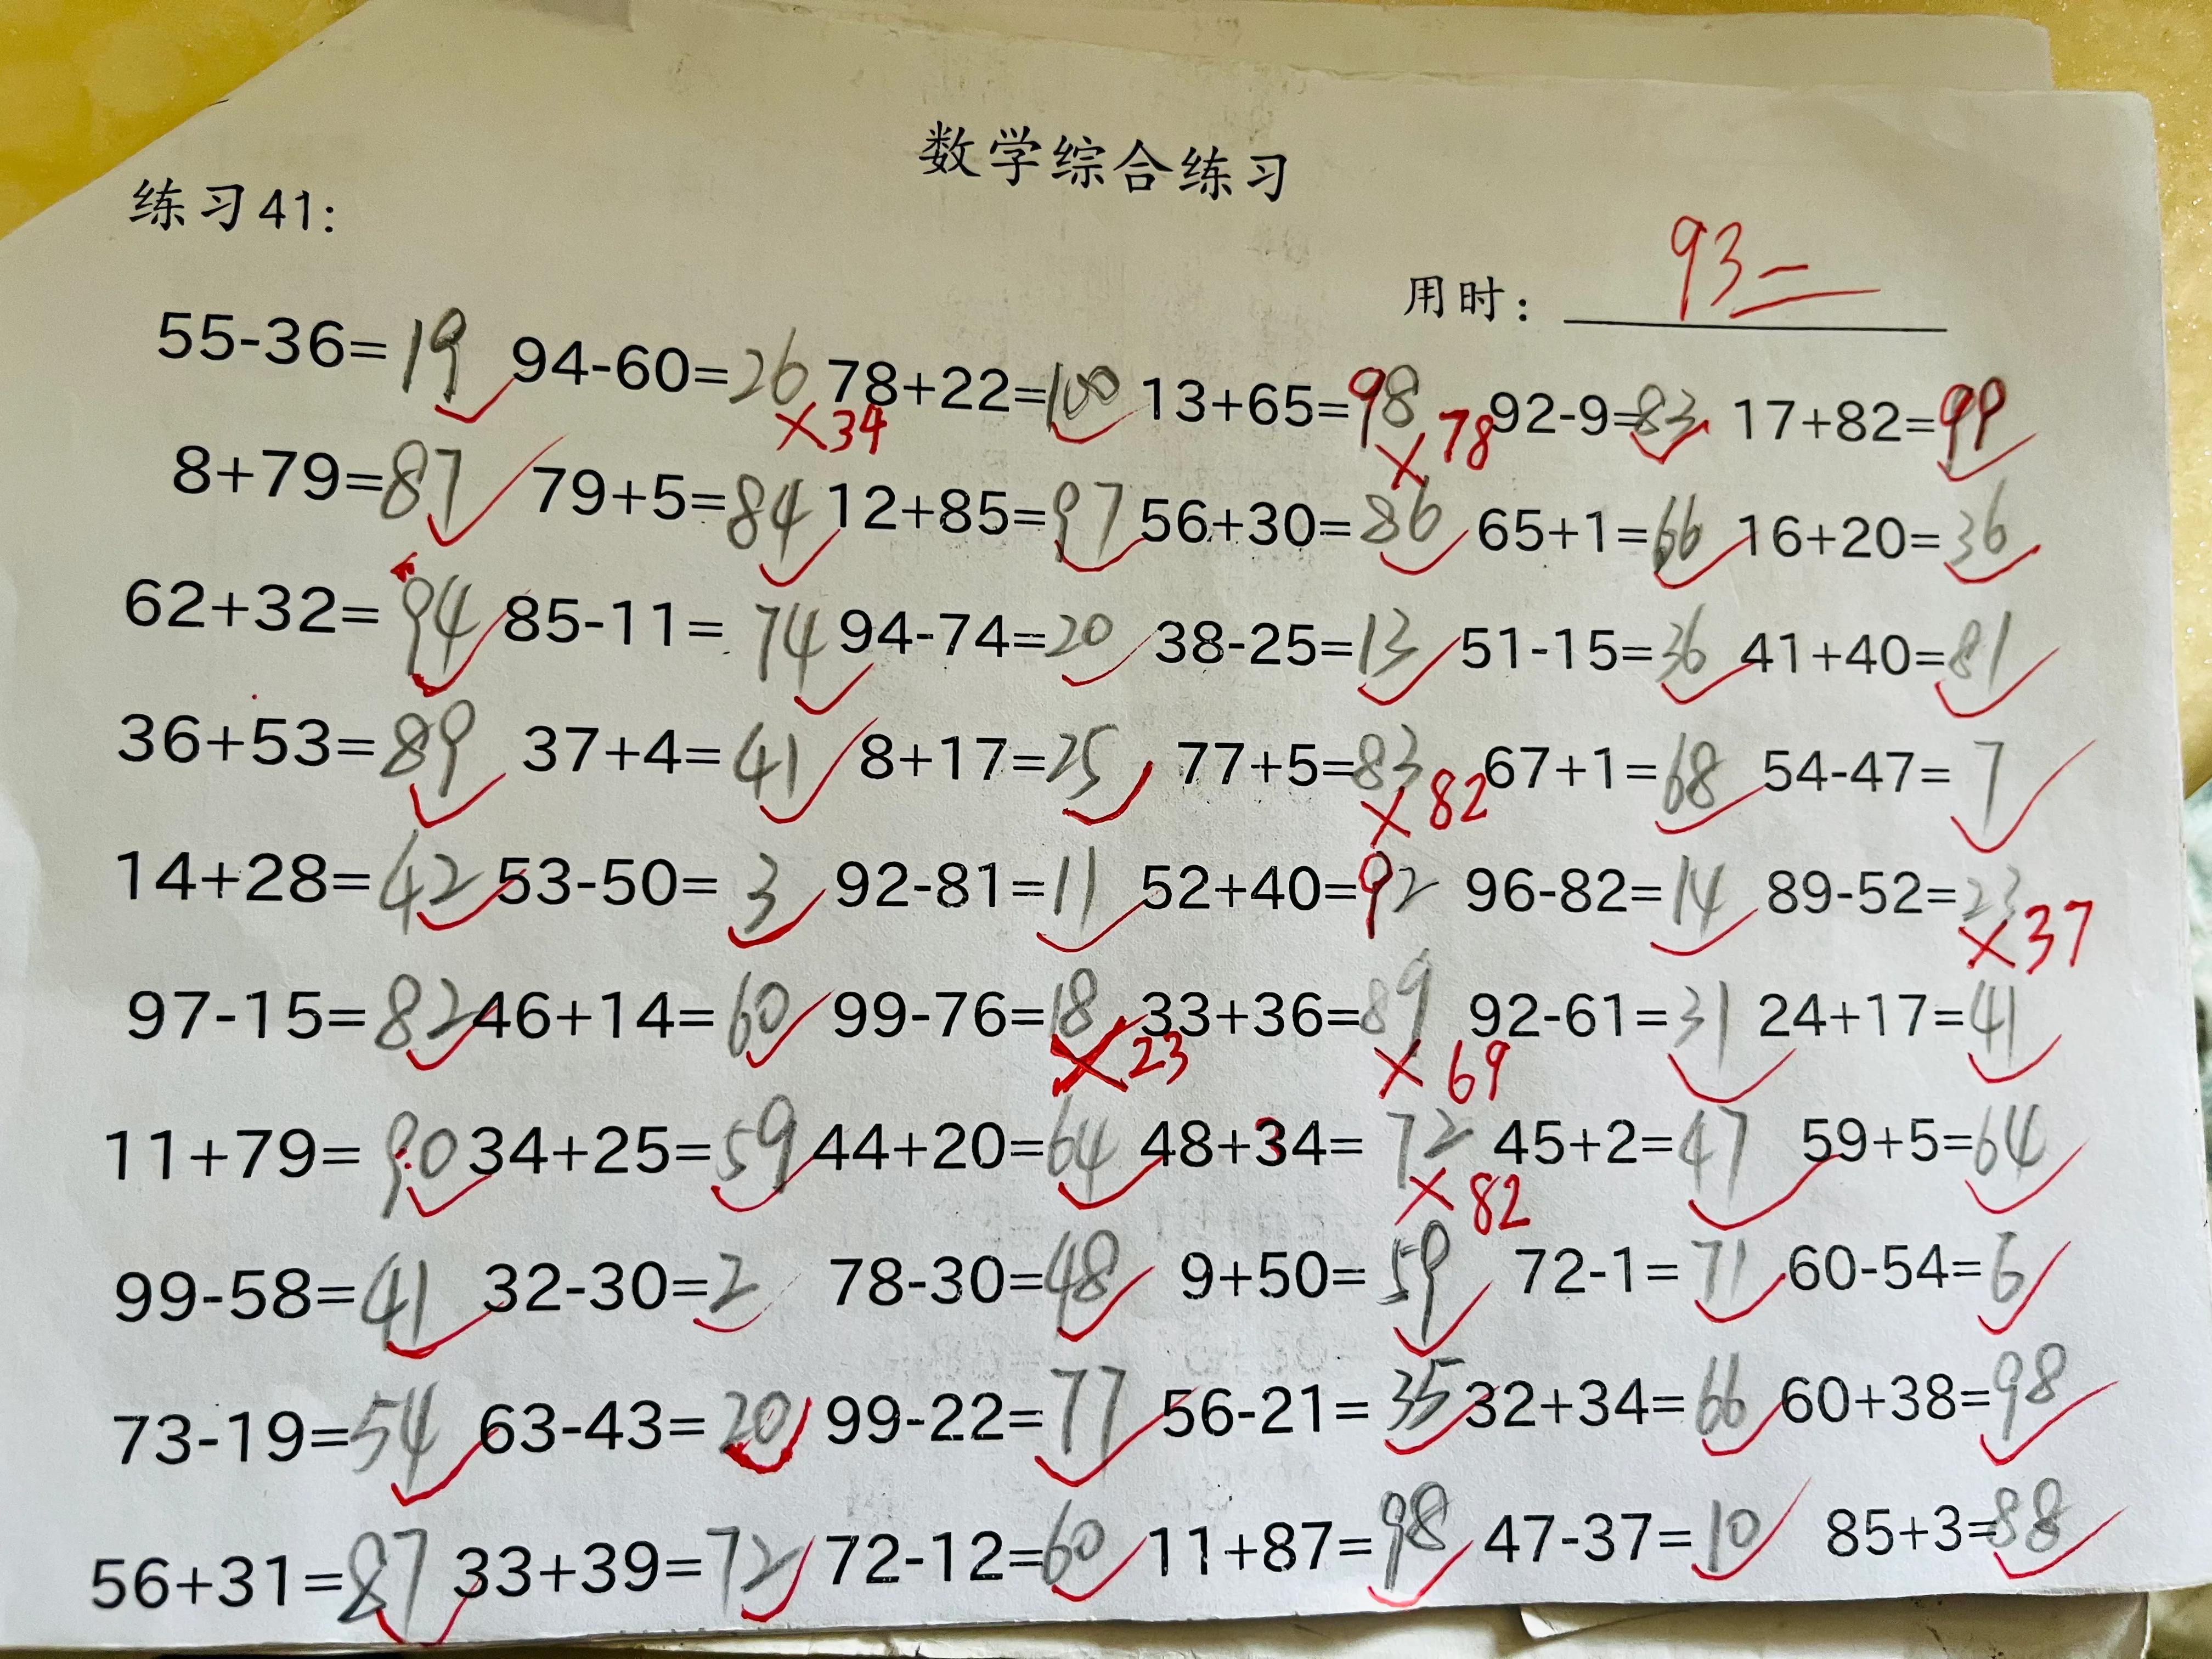 数学综合练习
练习41:
用时: 93
55-36=19 94-60=26 ×34 78+22=100 13+65=98 ×78 92-9=83 17+82=99
8+79=87 79+5=84 12+85=97 56+30=86 65+1=66 16+20=36
62+32=94 85-11=74 94-74=20 38-25=13 51-15=36 41+40=81
36+53=89 37+4=41 8+17=25 77+5=83 ×82 67+1=68 54-47=7
14+28=42 53-50=3 92-81=11 52+40=92 96-82=14 89-52=23 ×37
97-15=82 46+14=60 99-76=18 ×23 33+36=89 ×69 92-61=31 24+17=41
11+79=90 34+25=59 44+20=64 48+34=72 ×82 45+2=47 59+5=64
99-58=41 32-30=2 78-30=48 9+50=59 72-1=71 60-54=6
73-19=54 63-43=20 99-22=77 56-21=35 32+34=66 60+38=98
56+31=87 33+39=72 72-12=60 11+87=98 47-37=10 85+3=88